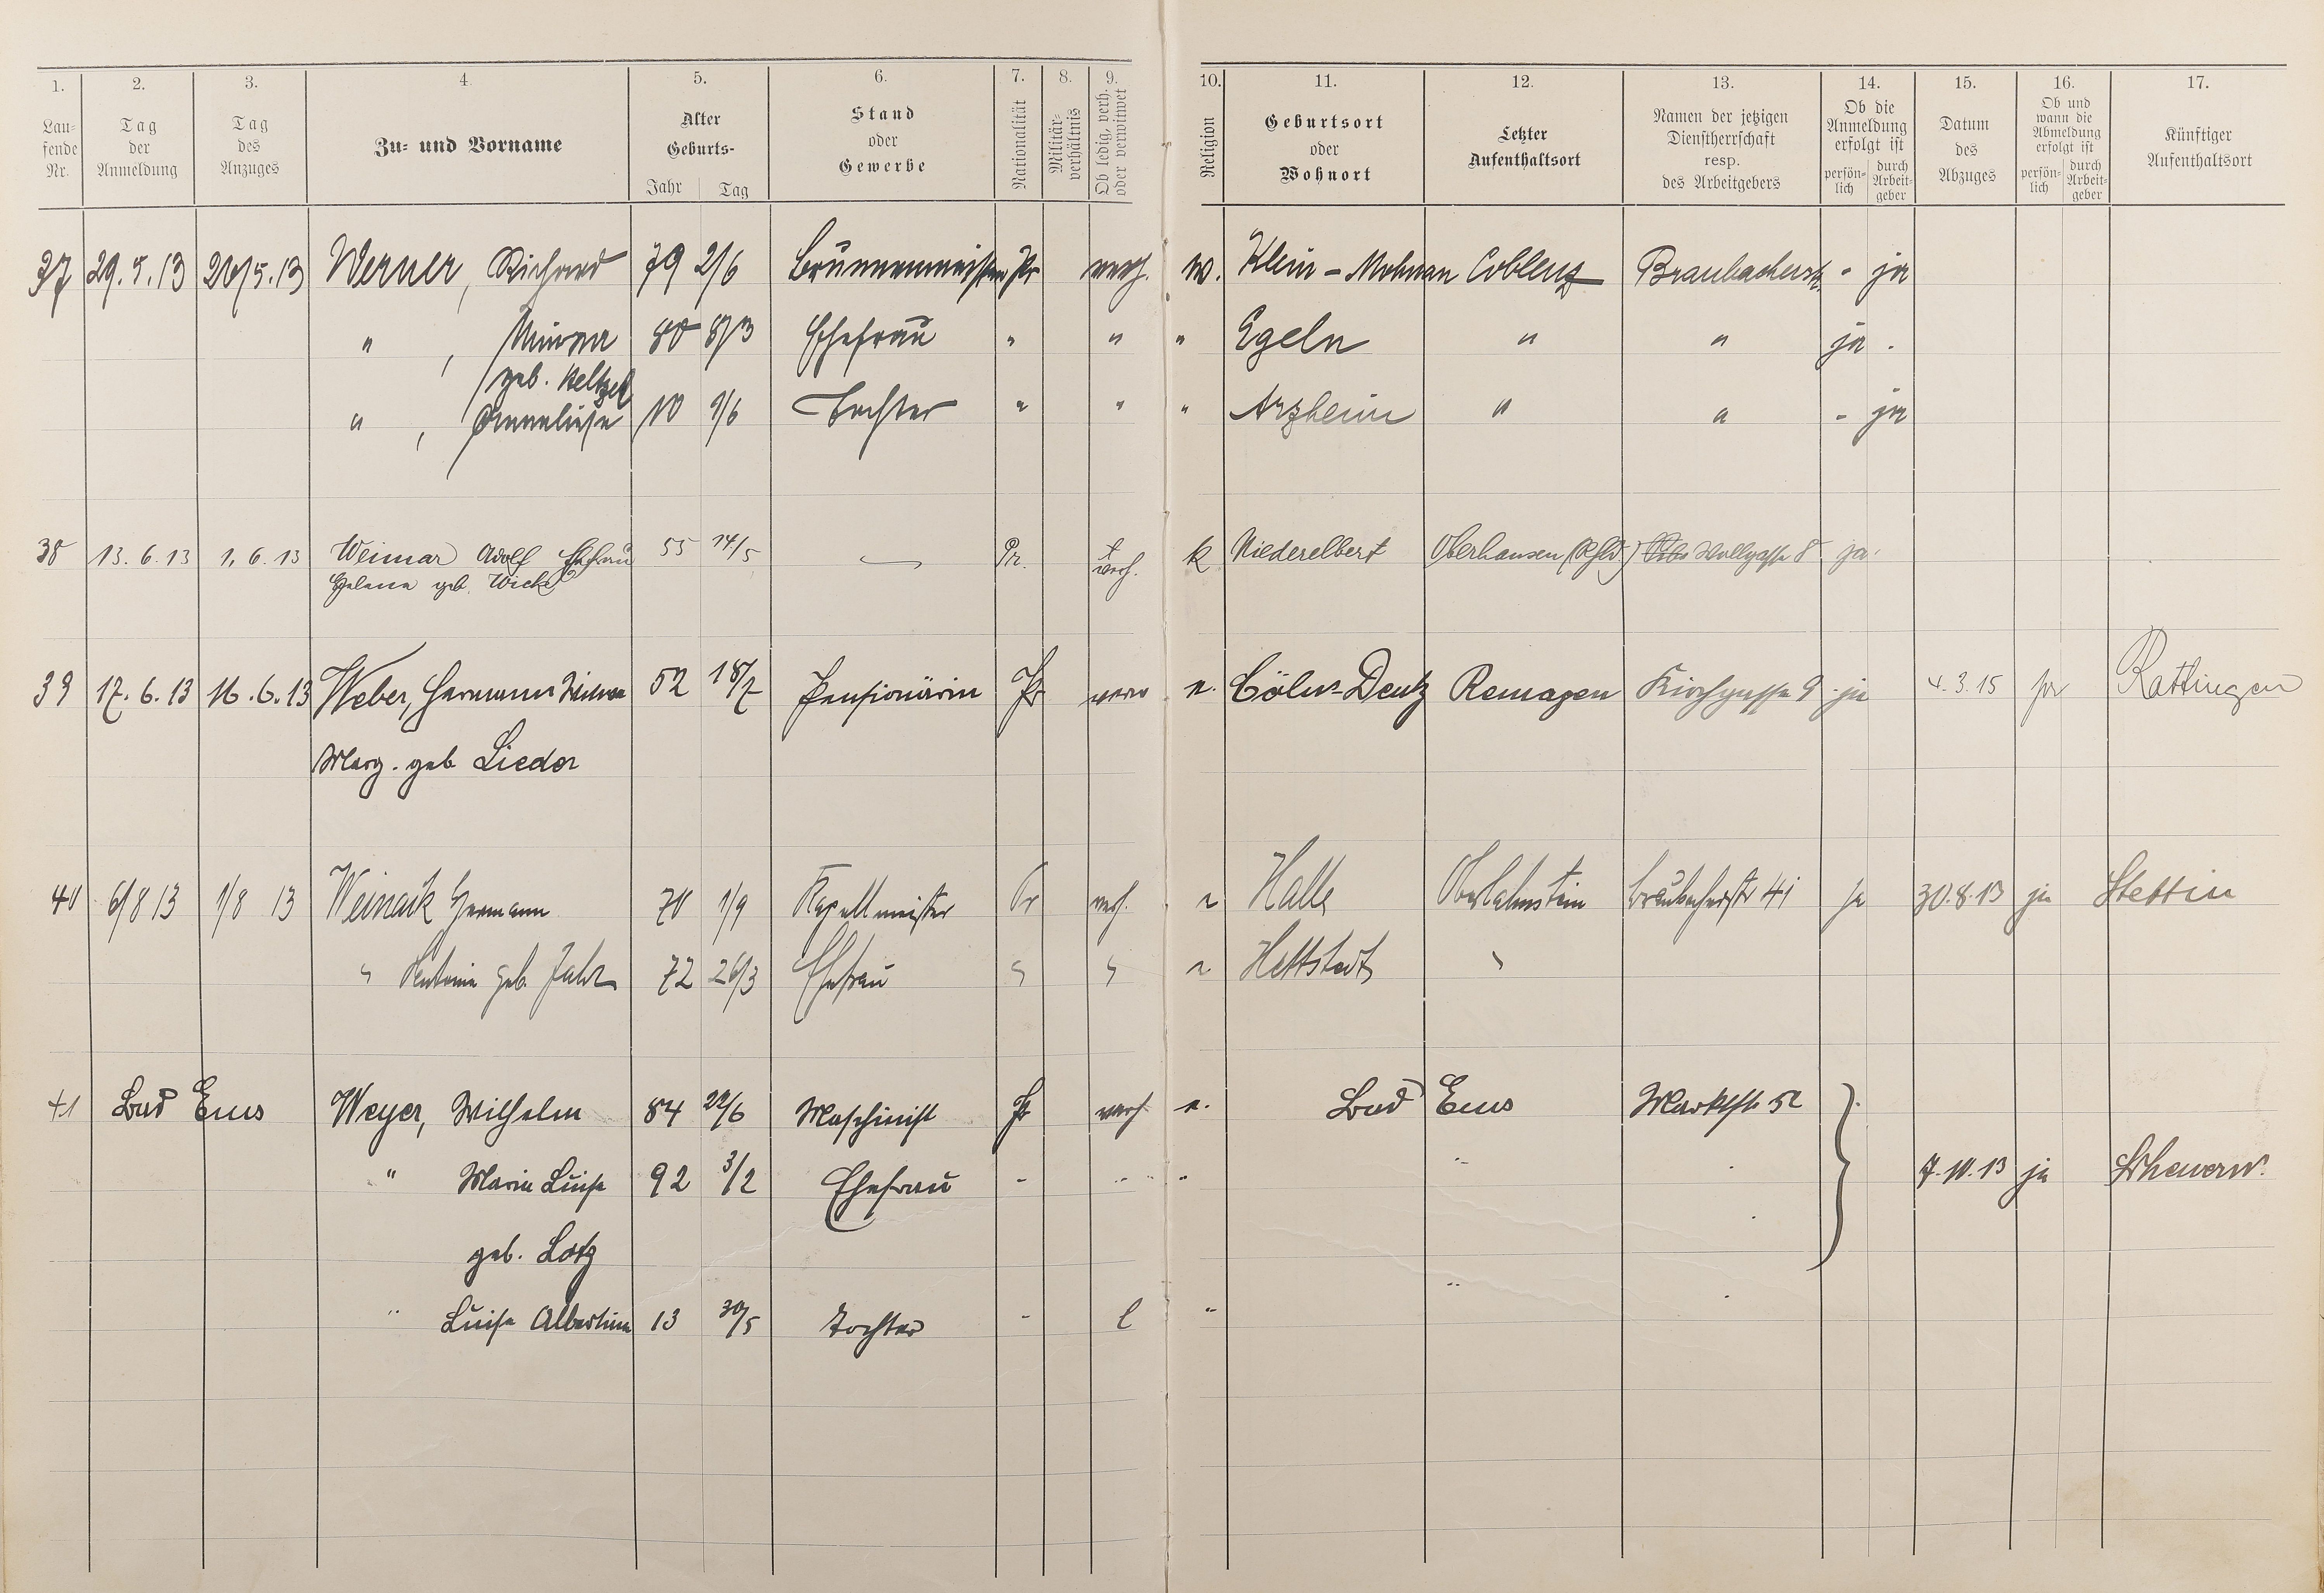 1. 2. 3. 4. 5. 6. 7. 8. 9. 10. 11. 12. 13. 14. 15. 16. 17.
Lau-
fende
Nr.
Tag
der
Anmeldung
Tag
des
Anzuges
Zu- und Vorname
Alter
Geburts-
Jahr Tag
Stand
oder
Gewerbe
Nationalität
Militär-
verhältnis
Ob ledig, verh.
oder verwitwet
Religion
Geburtsort
oder
Wohnort
Letzter
Aufenthaltsort
Namen der jetzigen
Dienstherrschaft
resp.
des Arbeitgebers
Ob die
Anmeldung
erfolgt ist
persön-
lich
durch
Arbeit-
geber
Datum
des
Abzuges
Ob und
wann die
Abmeldung
erfolgt ist
persön-
lich
durch
Arbeit-
geber
Künftiger
Aufenthaltsort
37 29.5.13 Werner, Richard 79 2/6 Brunnenmeister Pr verh. Klein- Coblenz Braubacherstr. - ja
" , 80 Ehefrau " " " Egeln " " ja .
geb.
" , Anneliese 10 9/6 Tochter " " " Arzheim " " - ja
38 13.6.13 1.6.13 Weimar Adolf Ehefrau 55 14/5 Pr. verh. k Niederelbert Oberhausen (Rhld.) Wallgasse 8 ja.
Helene geb. Wick
39 17.6.13 16.6.13 Weber, Hermann Witwe 52 18/7 Pensionärin Pr verw e. Cöln-Deutz Remagen Kirchgasse 9 ja 4.3.15 ja Rattingen
Marg. geb Lieder
40 6/8 13 1/8 13 Hermann 70 1/9 Kapellmeister Pr verh. e Halle Oberlahnstein Braubacherstr 41 ja 30.8.13 ja Stettin
" geb. Jahr 72 26/3 Ehefrau " " e Hettstedt "
41 Bad Ems Weyer, Wilhelm 84 22/6 Maschinist Pr verh e. Bad Ems Marktstr 52
" Marie Luise 92 3/2 Ehefrau - " " " 7.10.13 ja
geb. Lotz
" Luise Albertine 13 30/5 Tochter - l " "